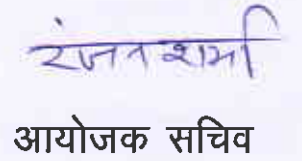 रंजन शर्मा
आयोजक सचिव